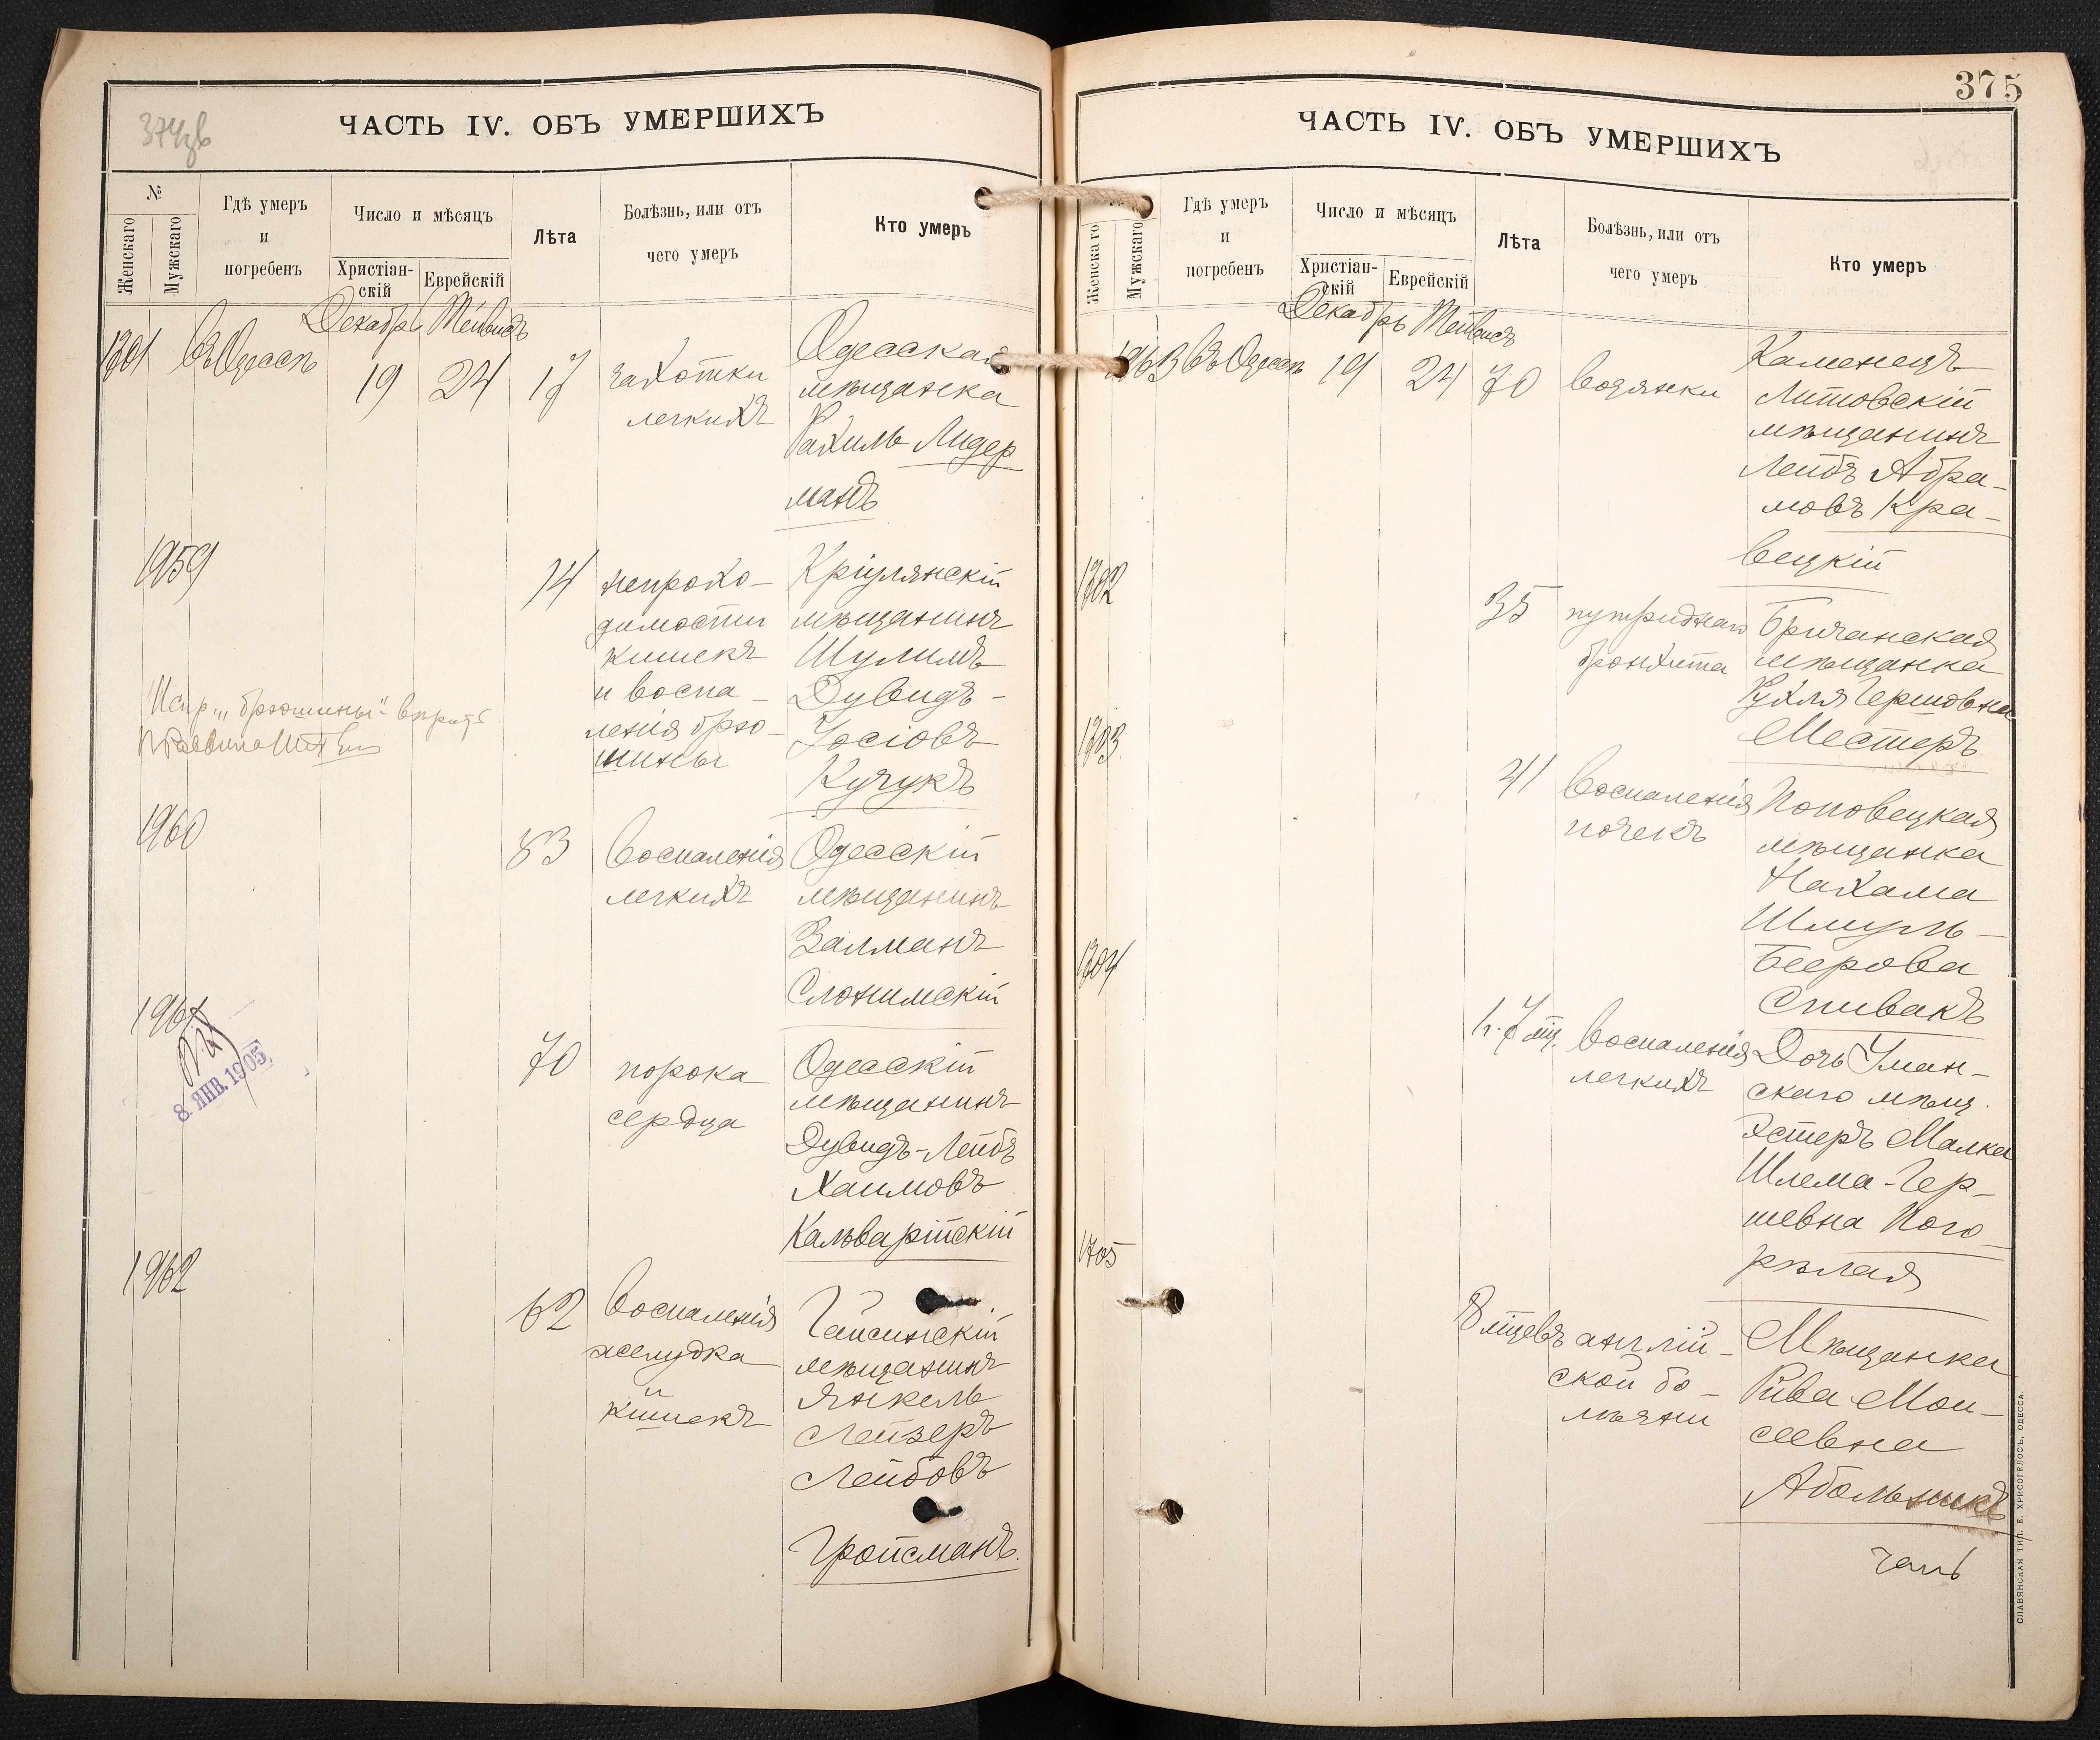 374об
ЧАСТЬ IV. ОБЪ УМЕРШИХЪ
№
Женскаго
Мужскаго
Гдѣ умеръ
и
погребенъ
Число и мѣсяцъ
Христіан-
скій
Еврейскій
Лѣта
Болѣзнь, или отъ
чего умеръ
Кто умеръ
Декабрь Тейвисъ
1301 Въ Одессѣ 19 24 17
чахотки
легкихъ
Одесская
мѣщанка
Рахиль Лидер
манъ
1959
14
непрохо-
димости
кишекъ
и воспа-
ленія брю-
шины
Кріулянскій
мѣщанинъ
Шулимъ
Дувидъ-
Іосіовъ
Кучукъ
Испр. „брюшины"
1960
83
воспаленія
легкихъ
Одесскій
мѣщанинъ
Залманъ
Слонимскій
1961
8 ЯНВ. 1905
70
порока
сердца
Одесскій
мѣщанинъ
Дувидъ-Лейбъ
Хаимовъ
Кальварійскій
1962
62
воспаленія
желудка
и
кишекъ
Гайсинскій
мѣщанинъ
Янкель
Лейзеръ
Лейбовъ
Гройсманъ.
375
ЧАСТЬ IV. ОБЪ УМЕРШИХЪ
Женскаго
Мужскаго
Гдѣ умеръ
и
погребенъ
Число и мѣсяцъ
Христіан-
скій
Еврейскій
Лѣта
Болѣзнь, или отъ
чего умеръ
Кто умеръ
Декабрь Тейвисъ
1963 Въ Одессѣ 19 24 70 водянки
Каменецъ
Литовскій
мѣщанинъ
Лейбъ Абра-
мовъ Кра-
вецкій
1302
35
путриднаго
бронхита
Бричанская
мѣщанка
Рухля Гершовна
Местеръ
1303
41
воспаленія
почекъ
Поповецкая
мѣщанка
Нахама
Шмуль-
Беерова
Спивакъ
1304
1 г. 7 мц.
воспаленія
легкихъ
Дочь Уман-
скаго мѣщ.
Эстеръ Малка
Шлема-Гер-
шевна Пого
рѣлая
1305
8 мцевъ
англій-
ской бо-
лѣзни
Мѣщанка
Рива Мои-
сеевна
Абольникъ
СЛАВЯНСКАЯ ТИП. Е. ХРИСОГЕЛОСЪ, ОДЕССА